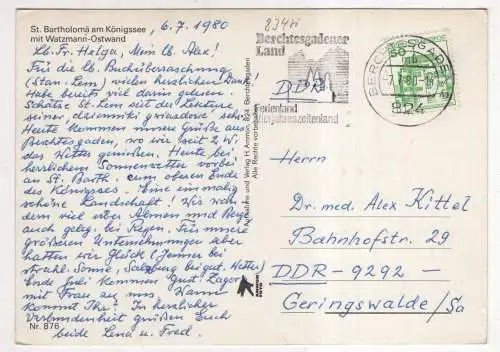 St. Bartholomä am Königssee
mit Watzmann-Ostwand
6.7.1980
Lb. Fr. Helga, Mein lb. Alex!
Für die lb. Buchüberraschung
(Stan. Lem) vielen herzlichen Dank!
Habe bereits viel darin gelesen.
Schätze St. Lem seit der Lektüre
seiner „dzienniki gwiazdowe" sehr.
Heute kommen unsere Grüße aus
Berchtesgaden, wo wir seit 2 W.
das Wetter genießen. Heute bei
herrlichem Sonnenwetter vorbei
an St. Barth. zum oberen Ende
des Königssees. Eine einmalig
schöne Landschaft! Wir
dem viel über Almen und Berg
auch geleg. bei Regen. Für unsere
größeren Unternehmungen aber
hatten wir Glück (Jenner bei
strahl. Sonne, Salzburg bei gut. Wetter)
Ende Juli kommen Gust. Zagor
mit Frau zu uns. Wann
kommt Ihr? In herzlicher
Verbundenheit grüßen Euch
beide Lena u. Fred.
Nr. 876
Aufnahme und Verlag H. Ammon, 824 Berchtesgaden
Alle Rechte vorbehalten
Berchtesgadener
Land
DDR
Ferienland
Vierjahreszeitenland
BERCHTESGADEN
824
50
Herrn
Dr. med. Alex Kittel
Bahnhofstr. 29
DDR-9292-
Geringswalde/Sa